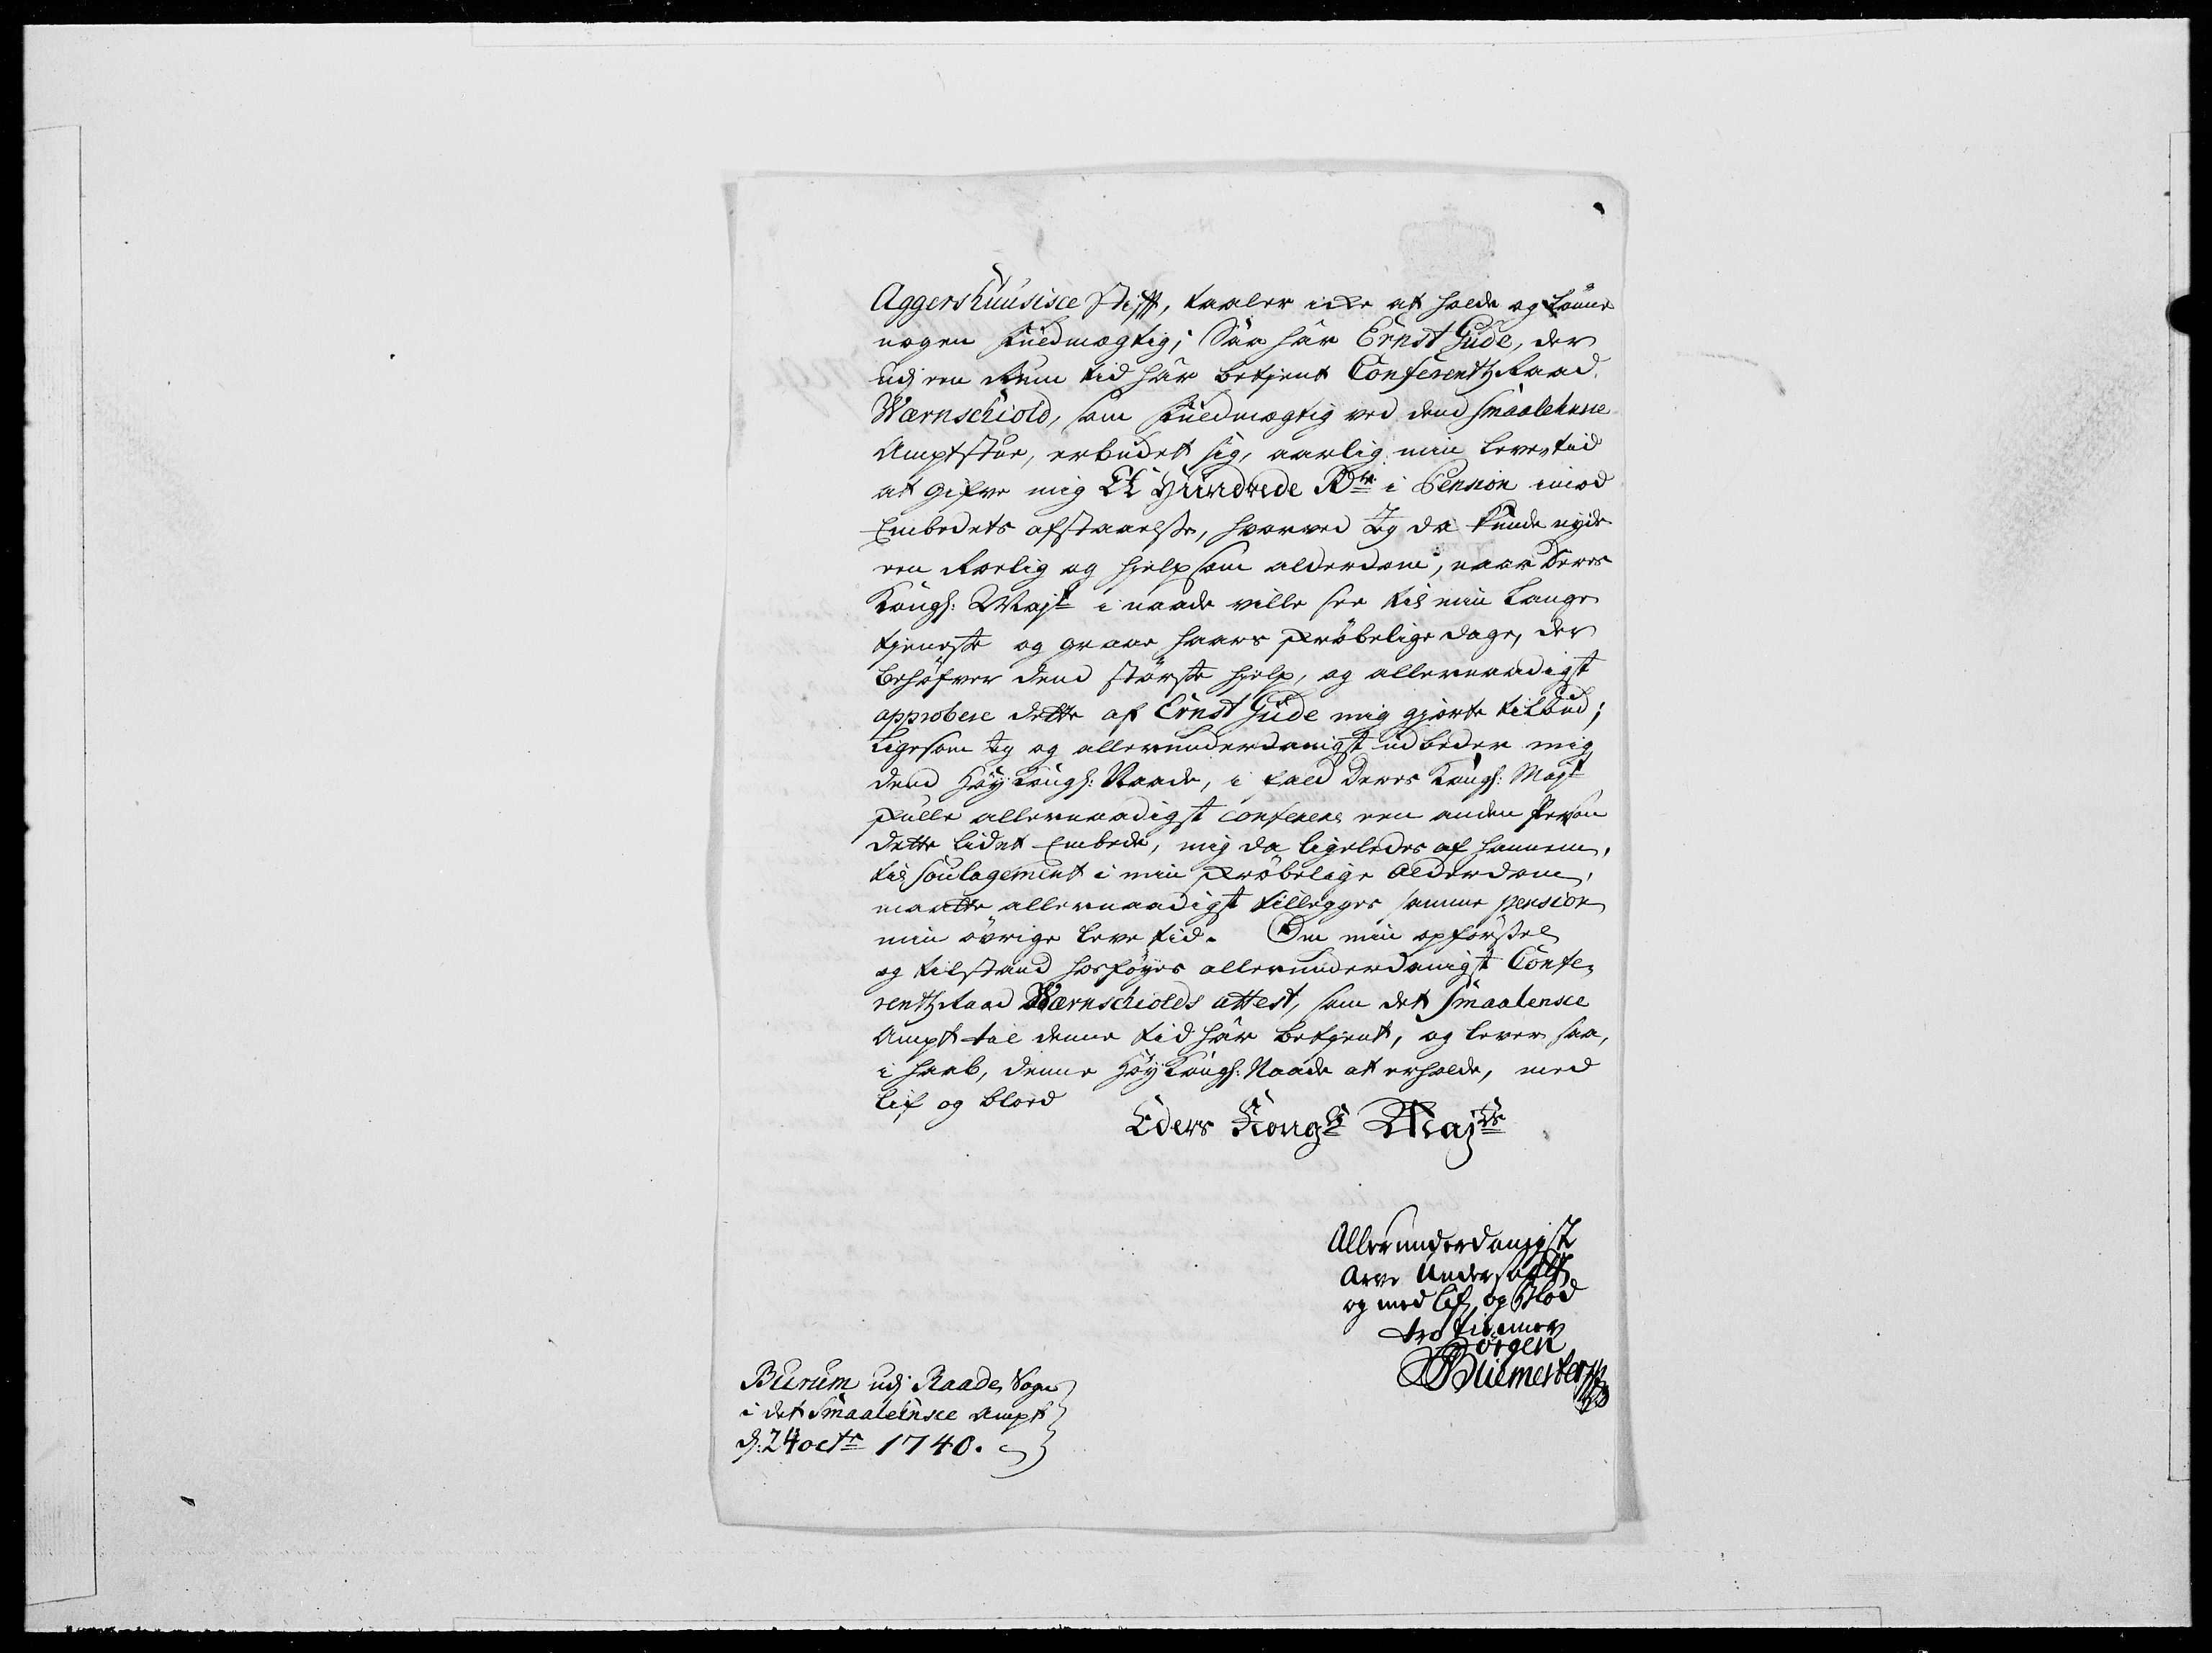 Aggershuusisce Stift, taaler icke at holde og lønne
nogen fuldmægtig; Saa har Ernst Gude, der
udj een Rum tid har betjent Conferentz Raad
Wærnschiold, som fuldmægtig ved dend Smaalehnsce
Amptstue, erbudet sig, aarlig min leves tiid
at gifve mig Et Hundrede Rdr i Pension imod
Embedets afstaaelse, hvorved Jeg da kunde nyde
een Roelig og hjelpsom alderdom, naar Deres
Kongl: Majt i naade ville see til min Lange
tjeneste og graae haars skrøbelige dage, der
behøfver dend største hjelp, og allernaadigst
approbere dette af Ernst Gude mig gjorte tilbud;
Ligesom Jeg og allerunderdanigst udbeder mig
dend Høy Kongl: Naade, i fald Deres Kongl: Majt
skulle allernaadigst conferere een anden Person
dette lidet Embede, mig da ligeledes af hannem,
til soulagement i min skrøbelige Alderdom,
maatte allernaadigst tillegges samme pension
min øvrige leve tid. Om min opførsel
og tilstand hosføyes allerunderdanigst Confe-
rentz Raad Wærnschiolds attest, som det Smaalensce
Ampt til denne tid har betjent, og lever saa,
i haab, denne Høy Kongl: Naade at erholde, med
lif og bloed
Eders Kongl Majts
Allerunderdanigst
Arve Undersaatt
og med lif og Blod
tro tienner
Jörgen
Buemester
Burum udj Raade Sogn
i det Smaalehnsce Ampt
d: 24 octr 1740.